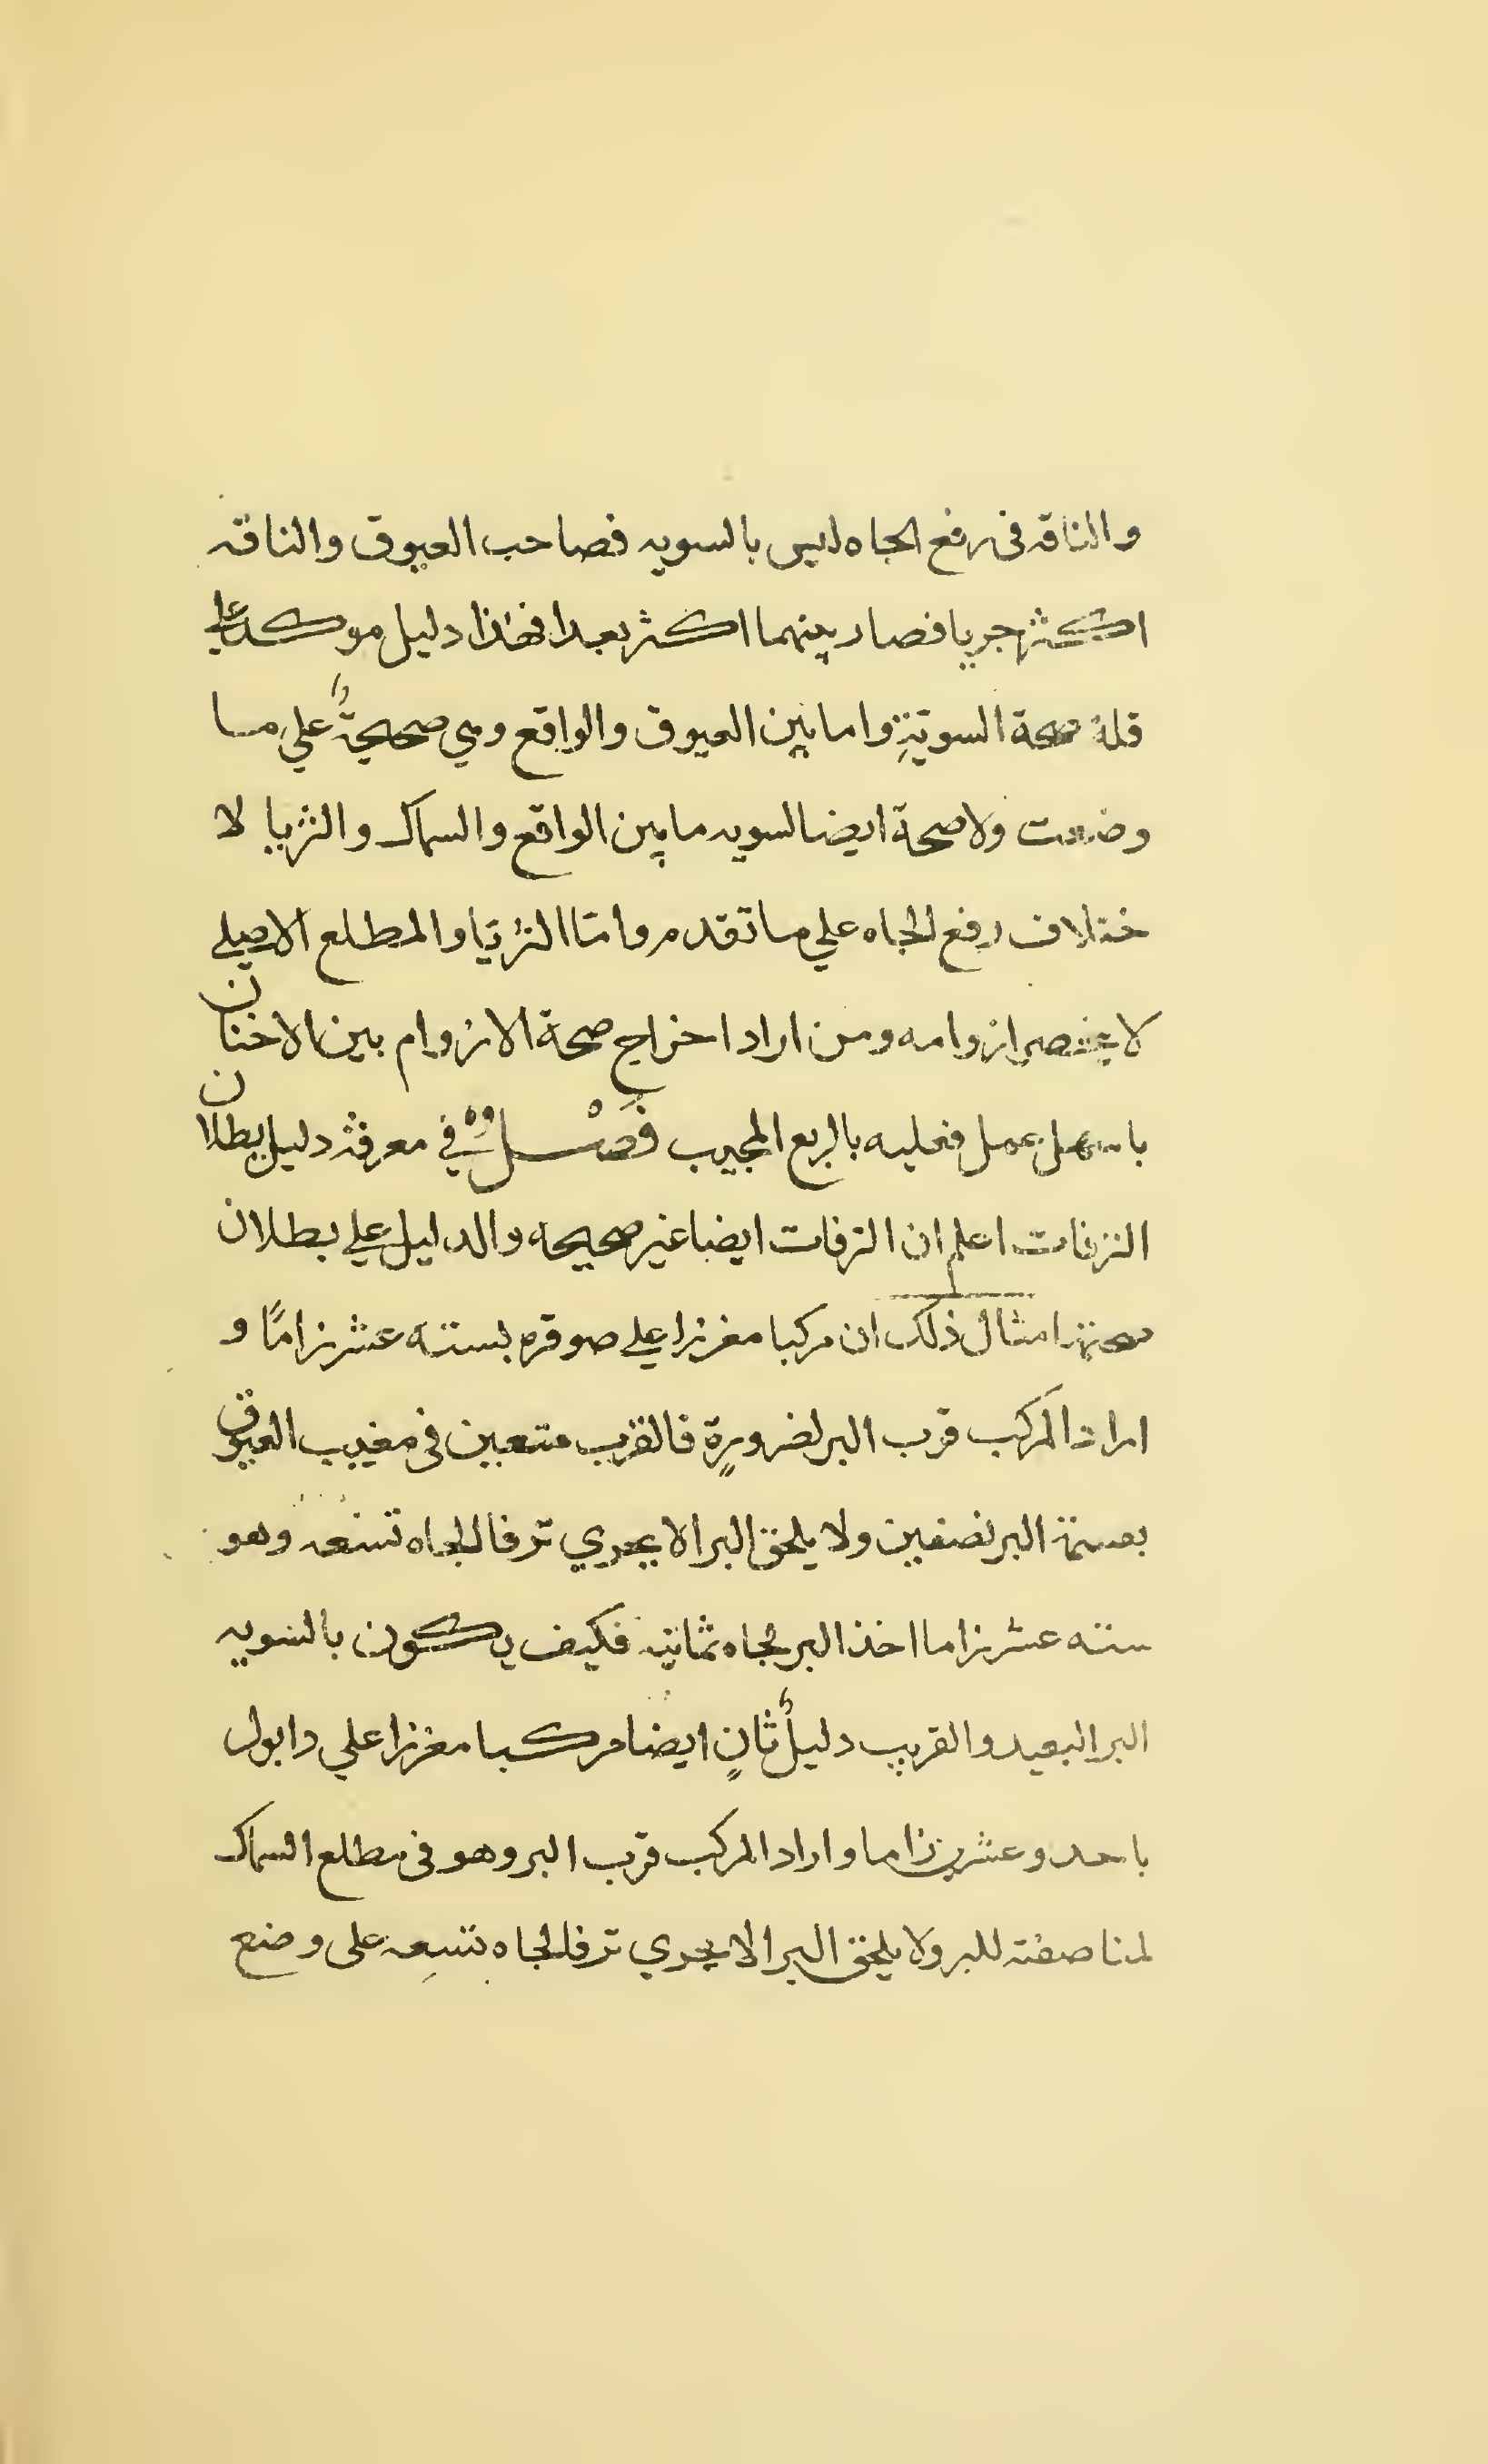 والناقه فى رفع الجاه ليس بالسويه فصاحب العيوق والناقه
اكثر جريا فصار بينهما اكثر بعدا فهذا دليل موكد على
قلة صحة السوية واما بين العيوق والواقع وهي صحيحةٌ علي ما
وضعت ولا صحة ايضا لسويه ما بين الواقع والسماك والثريا لا
ختلاف رفع الجاه علي ما تقدم وامّا الثريّا والمطلع الاصلي
لا ازوامه ومن اراد اخراج صحة الازوام بين الاخنان
باسهل عمل فعليه بالربع المجيب فَصْــل في معرفة دليل بطلان
الترفات اعلم ان الترفات ايضا غير صحيحه والدليل علي بطلان
صحتها مثال ذلك ان مركبا مغزرا علي صوقره بسته عشر زامًا و
اراد المركب قرب البر لضرورةٍ فالقرب متعين فى مغيب العيوق
بصنة البر نصفين ولا يلحق البر الا يجري ترفا الجاه تسعه وهو
سته عشر زاما اخذ البر لجاه ثمانيه فكيف يكون بالسويه
البر البعيد والقريب دليلٌ ثانٍ ايضا مركبا مغزرا علي دابول
باحد وعشرين زاما واراد المركب قرب البر وهو فى مطلع السماك
لمناصفته للبر ولا يلحق البر الا يجري ترفا لجاه تسعه على وضع